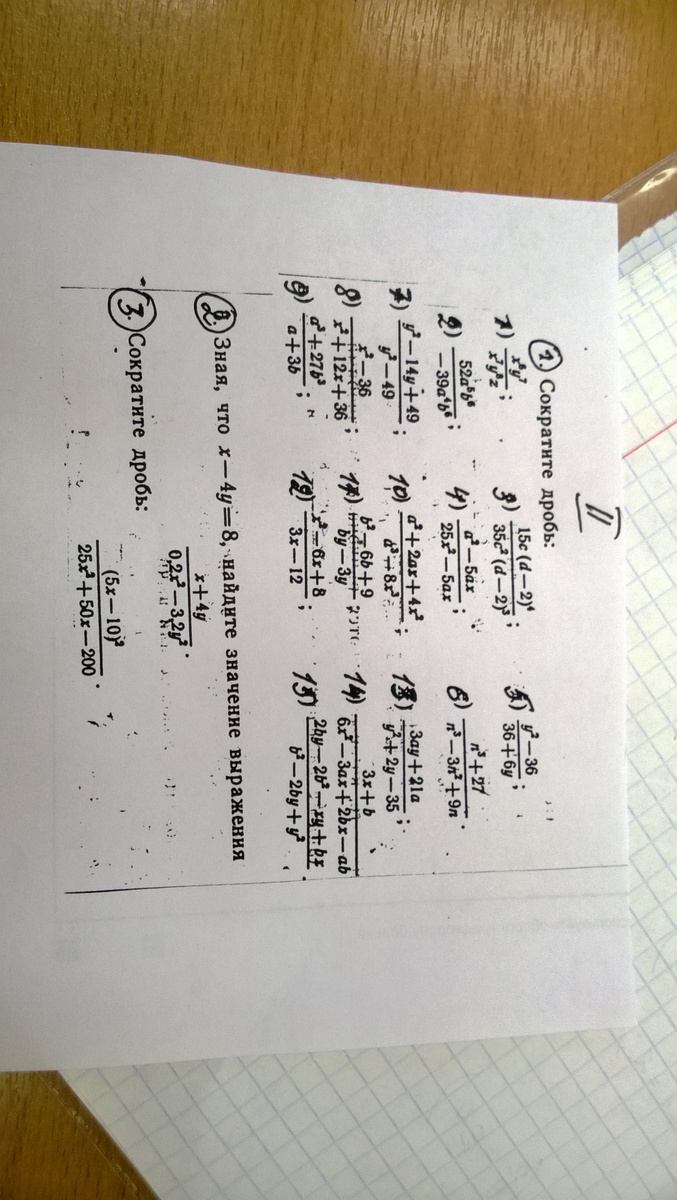 II
1. Сократите дробь:
1) x⁸y⁷/x⁷y⁸z; 3) 15c(d−2)⁴/35c²(d−2)³; 5) y²−36/36+6y;
2) 52a⁵b⁶/−39a⁴b⁶; 4) a²−5ax/25x²−5ax; 6) n³+27/n³−3n²+9n.
7) y²−14y+49/y²−49; 10) a²+2ax+4x²/a³+8x³; 13) 3ay+21a/y²+2y−35;
8) x²−36/x²+12x+36; 11) b²−6b+9/by−3y 14) 3x+b/6x²−3ax+2bx−ab
9) a³+27b³/a+3b; 12) x²−6x+8/3x−12; 15) 2by−2b²−xy+bx/b²−2by+y²
2. Зная, что x−4y=8, найдите значение выражения
x+4y/0,2x²−3,2y².
3. Сократите дробь: (5x−10)²/25x²+50x−200.